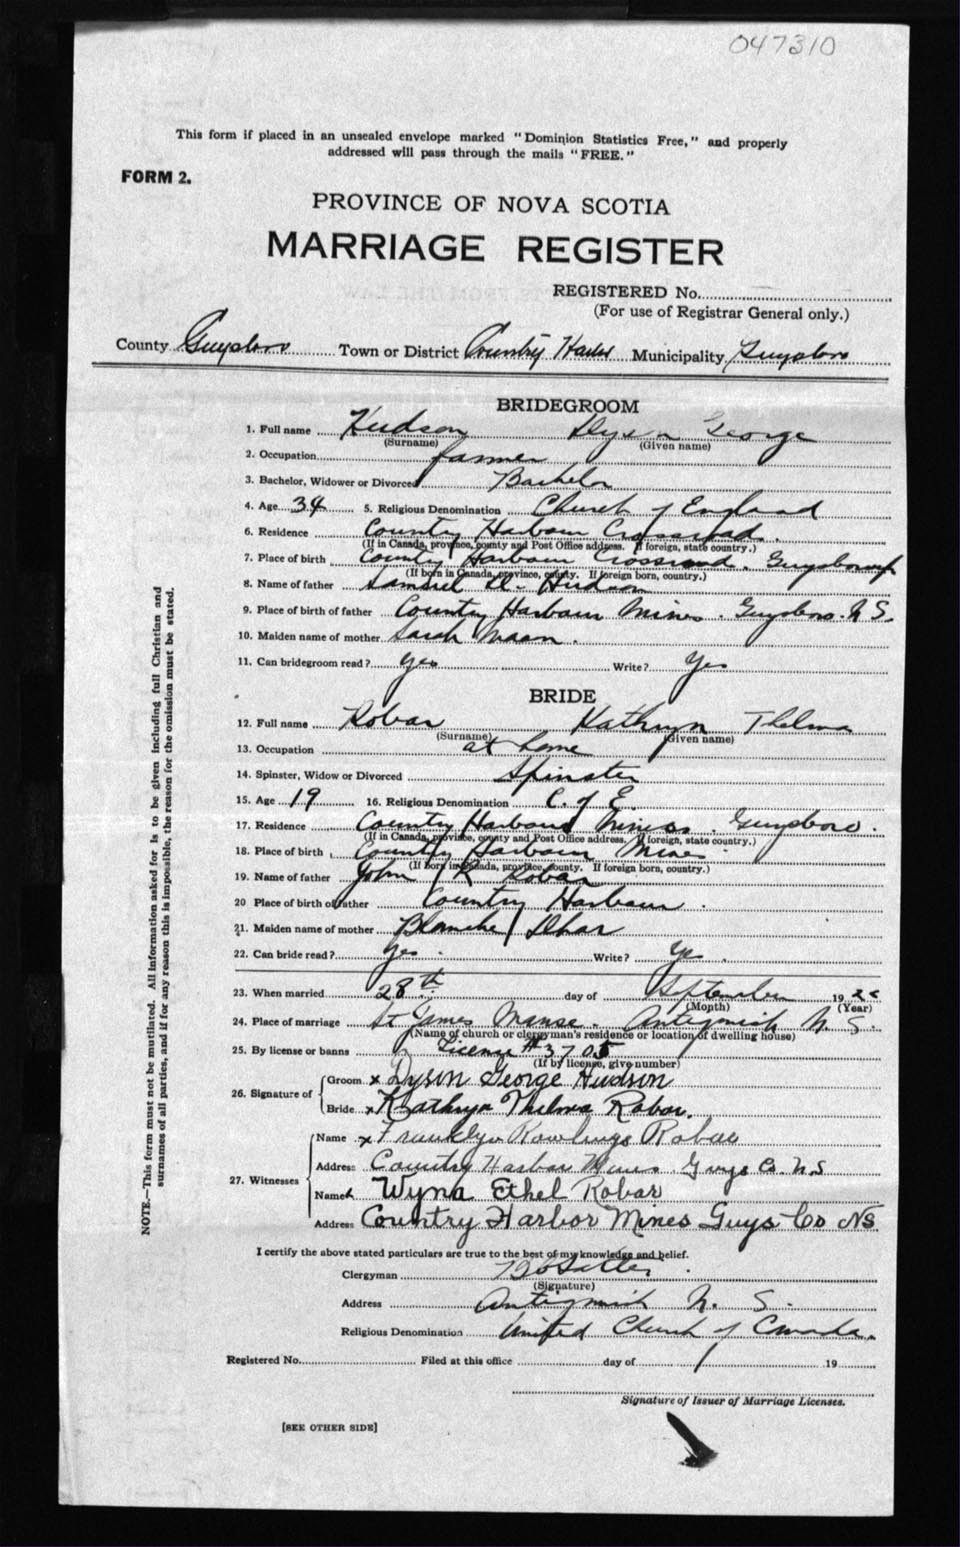 047310
This form if placed in an unsealed envelope marked "Dominion Statistics Free," and properly
addressed will pass through the mails "FREE."
FORM 2.
PROVINCE OF NOVA SCOTIA
MARRIAGE REGISTER
REGISTERED No.
(For use of Registrar General only.)
County Guysboro Town or District Country Harbor Municipality Guysboro
BRIDEGROOM
1. Full name Hudson Dyson George
(Surname) (Given name)
2. Occupation farmer
3. Bachelor, Widower or Divorced Bachelor
4. Age 34 5. Religious Denomination Church of England
6. Residence Country Harbour Crossroad.
(If in Canada, province, county and Post Office address. If foreign, state country.)
7. Place of birth Country Harbour Crossroad. Guysboro
(If born in Canada, province, county. If foreign born, country.)
8. Name of father Samuel Hudson
9. Place of birth of father Country Harbour Mines. Guysboro. N.S.
10. Maiden name of mother Sarah Mason.
11. Can bridegroom read? Yes Write? Yes
BRIDE
12. Full name Robar Kathryn Thelma
(Surname) (Given name)
13. Occupation at home
14. Spinster, Widow or Divorced Spinster
15. Age 19 16. Religious Denomination C. of E.
17. Residence Country Harbour Mines. Guysboro.
(If in Canada, province, county and Post Office address. If foreign, state country.)
18. Place of birth Country Harbour Mines
(If born in Canada, province, county. If foreign born, country.)
19. Name of father John R Robar
20 Place of birth of father Country Harbour.
21. Maiden name of mother Blanche
22. Can bride read? Yes. Write? Yes.
23. When married 28th day of September 19
(Month) (Year)
24. Place of marriage St James Manse. Antigonish N. S.
(Name of church or clergyman's residence or location of dwelling house)
25. By license or banns License #3705
(If by license, give number)
26. Signature of Groom x Dyson George Hudson
Bride x Kathryn Thelma Robar.
27. Witnesses Name x Franklyn Rawlings Robar
Address Country Harbor Mines Guys Co. N.S
Name x Wyna Ethel Robar
Address Country Harbor Mines Guys Co NS
I certify the above stated particulars are true to the best of my knowledge and belief.
Clergyman
(Signature)
Address Antigonish N. S.
Religious Denomination United Church of Canada.
Registered No. Filed at this office day of 19
Signature of Issuer of Marriage Licenses.
[SEE OTHER SIDE]
NOTE.—This form must not be mutilated. All information asked for is to be given including full Christian and
surnames of all parties, and if for any reason this is impossible, the reason for the omission must be stated.